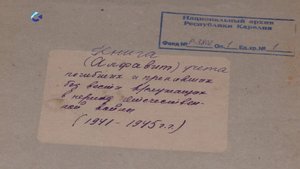 Национальный архив
Республики Карелия
Фонд № Оп. 1 Ед. хр. № 1
Книга
(Алфавит) учета
погибших и пропавших
без вести военнослужащих
в период Отечествен-
ной войны
(1941 - 1945 г.г.)